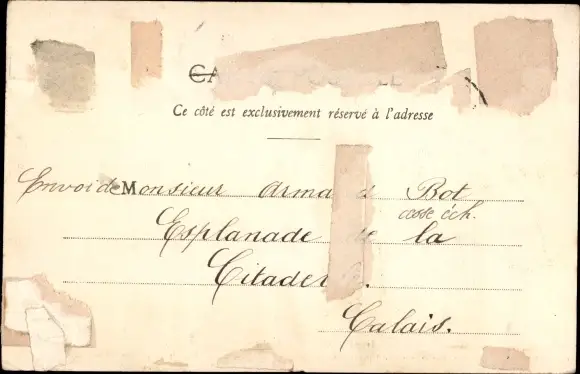 CA
Ce côté est exclusivement réservé à l'adresse
Envoi de Monsieur Arma d Bot
Esplanade de la
Citadel
Calais.